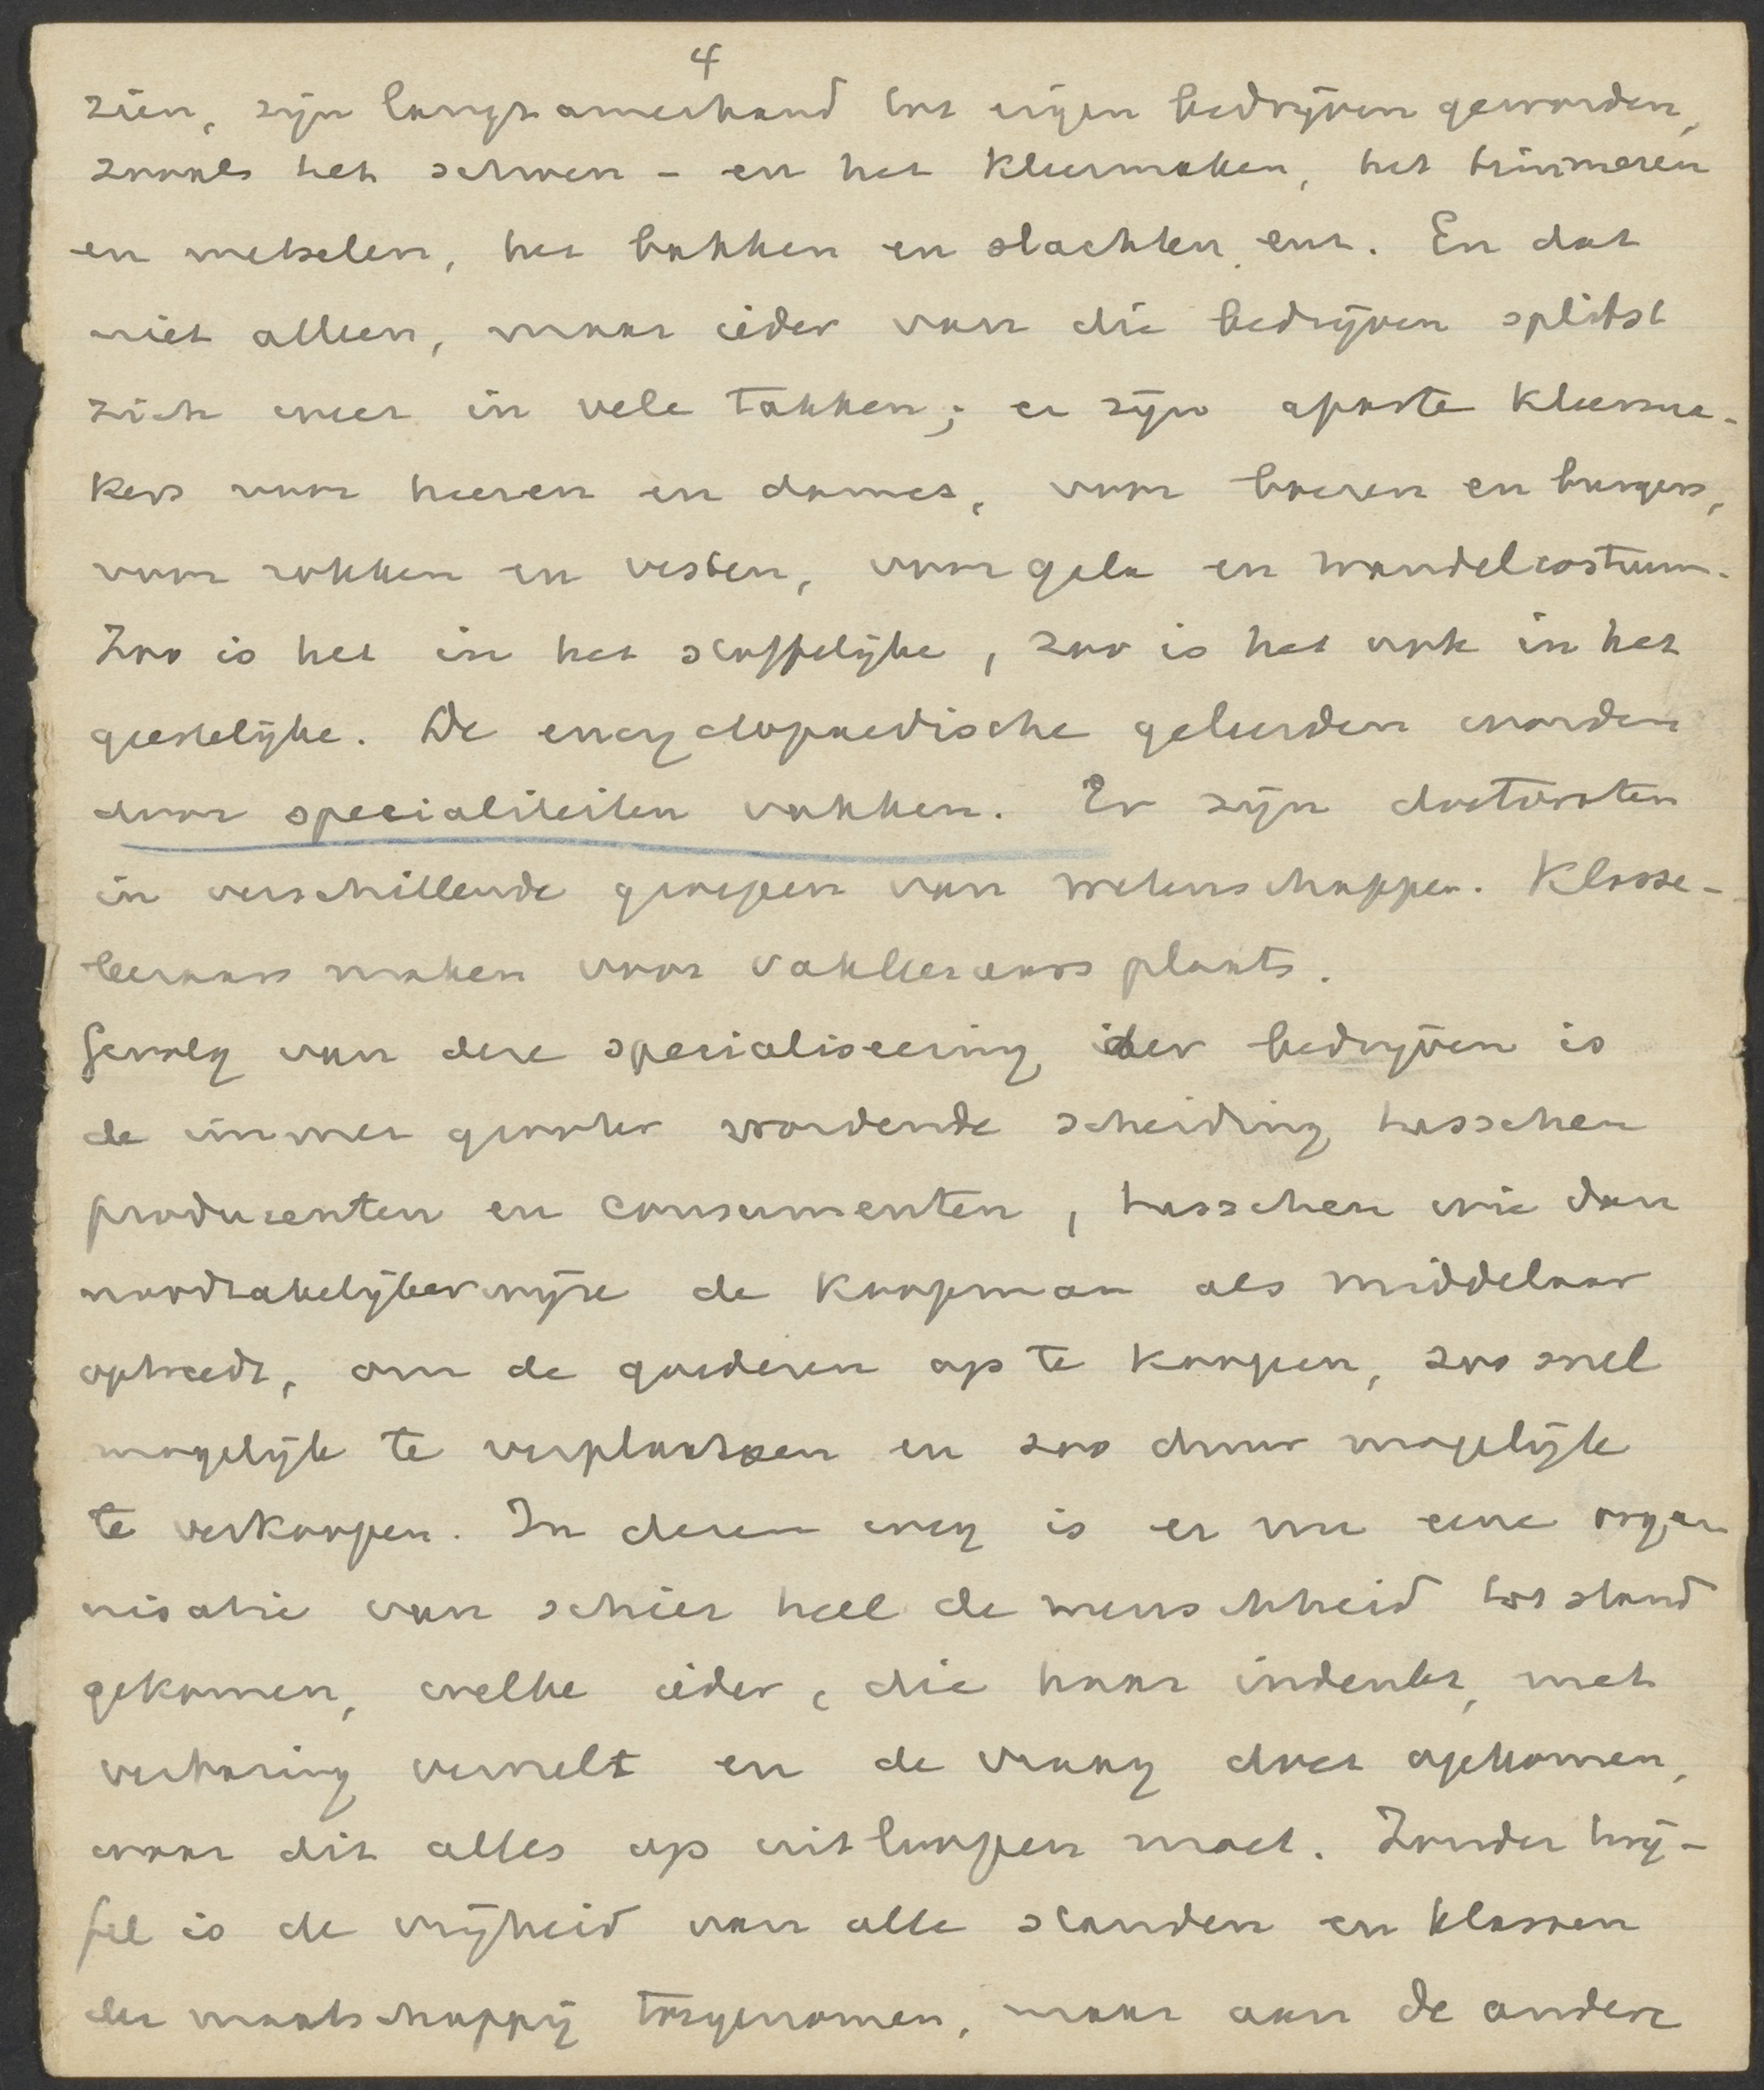 4
zien, zijn langzamerhand tot eigen bedrijven geworden,
zooals het schoen- en het kleermaken, het timmeren
en metselen, het bakken en slachten enz. En dat
niet alleen, maar ieder van die bedrijven splitst
zich weer in vele takken; er zijn aparte kleerma-
kers voor heeren en dames, voor boeren en burgers,
voor rokken en vesten, voor gala en wandelcostuum.
Zoo is het in het stoffelijke, zoo is het ook in het
geestelijke. De encyclopaedische geleerden worden
door specialiteiten vakken. Er zijn doctoraten
in verschillende groepen van wetenschappen. Klasse-
leeraars maken voor vakleeraars plaats.
Gevolg van deze specialiseering der bedrijven is
de immer grooter wordende scheiding tusschen
producenten en consumenten, tusschen wie dan
noodzakelijkerwijze de koopman als middelaar
optreedt, om de goederen op te koopen, zoo snel
mogelijk te verplaatsen en zoo duur mogelijk
te verkoopen. In dezen weg is er nu eene orga
nisatie van schier heel de menschheid tot stand
gekomen, welke ieder, die haar indenkt, met
verbazing vervult en de vraag doet opkomen,
waar dit alles op uitloopen moet. Zonder twij-
fel is de vrijheid van alle standen en klassen
der maatschappij toegenomen, maar aan de andere